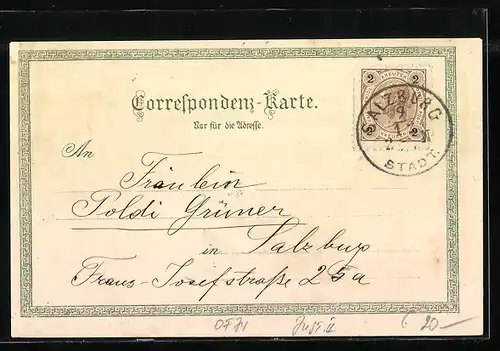 2 KREUZER 2
Correspondenz-Karte.
SALZBURG
Nur für die Adresse.
9
1
2 2
STADT.
An
Fräulein
Poldi Grüner
in Salzburg
Franz-Josefstraße 25a
20—